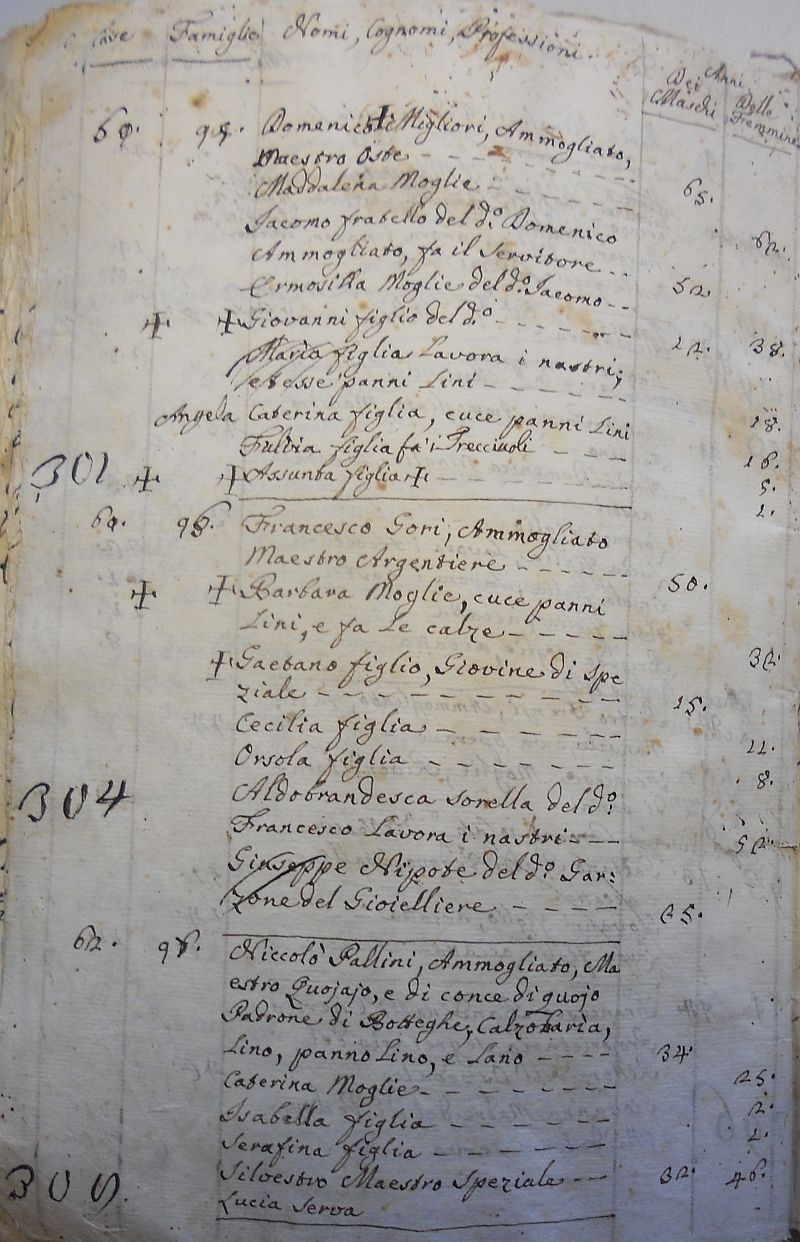 Case Famiglie Nomi, Cognomi, Professioni. Anni
Dei Maschi Delle Femmine
60. Domenico Migliori, Ammogliato,
Maestro Oste 65.
Maddalena Moglie 62.
Iacomo fratello del d.º Domenico
Ammogliato, fa il Servitore 52.
Ermosilla Moglie del d.º Iacomo 38.
Giovanni figlio del d.º 12.
Maria figlia Lavora i nastri,
e tesse panni Lini 18.
Angela Caterina figlia, cuce panni Lini 16.
Fulvia figlia fa i Trecciuoli 5.
301 Assunta figlia 1.
Francesco Gori, Ammogliato
Maestro Argentiere 50.
Barbara Moglie, cuce panni
Lini, e fa Le calze
Gaetano figlio, Giovine di Spe
ziale 15.
Cecilia figlia 11.
Orsola figlia 8.
304 Aldobrandesca sorella del d.º
Francesco Lavora i nastri 52.
Giuseppe Nipote del d.º Gar:
zone del Gioielliere
62. Niccolò Pallini, Ammogliato, Ma
estro Quojajo, e di conce di quojo
Padrone di Botteghe, Calzolaria,
Lino, panno Lino, e Lano 34.
Caterina Moglie 25.
Isabella figlia 2.
Serafina figlia 1.
305 Silvestro Maestro Speziale 32.
Lucia Serva 46.